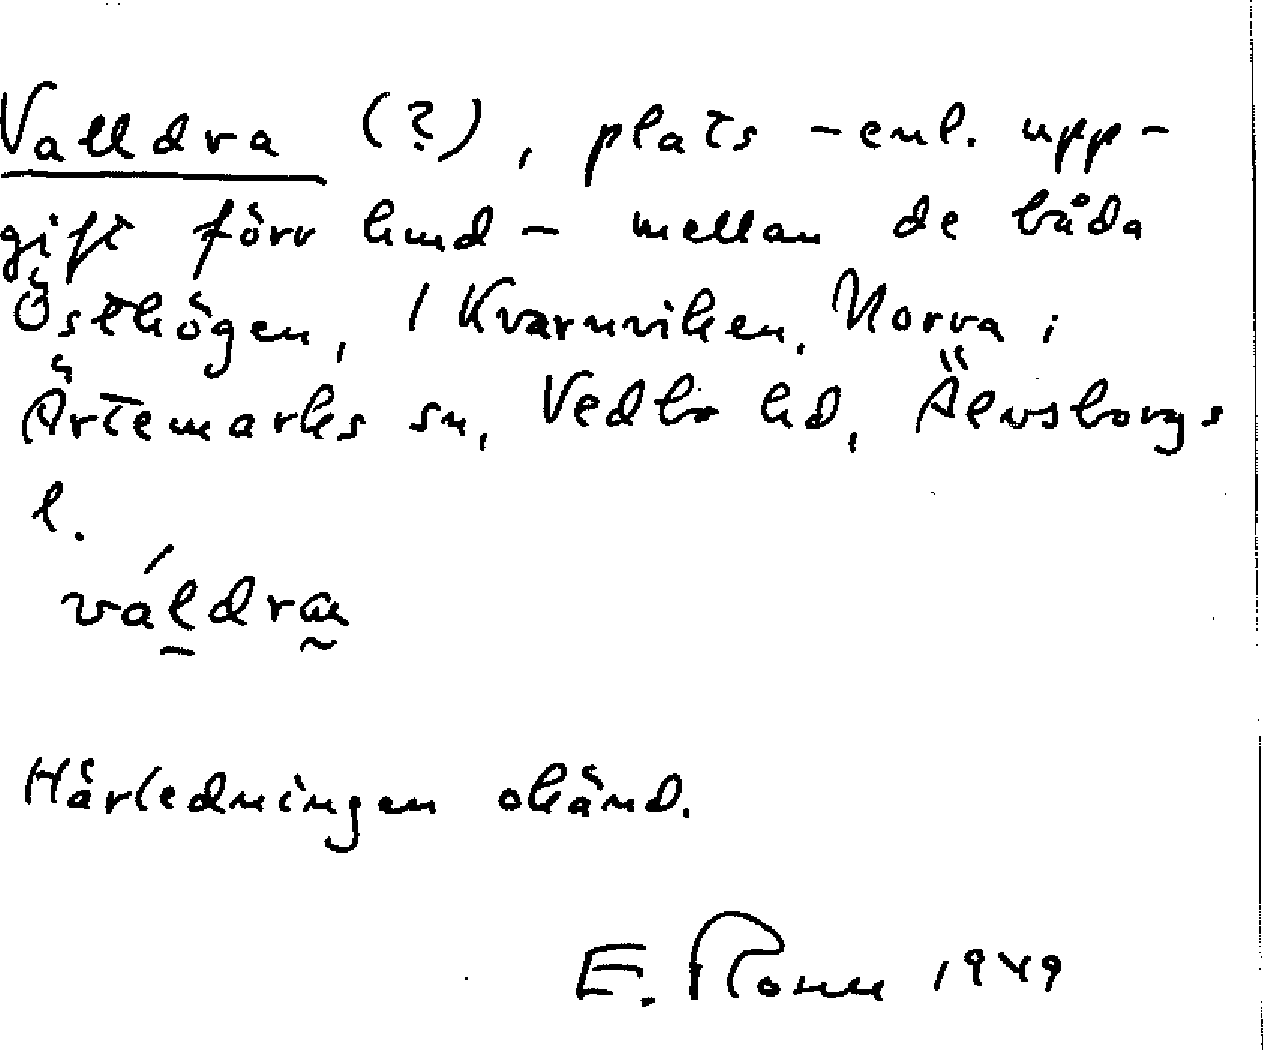 Valldra (?), plats - enl. upp-
gift förr lund - mellan de båda
Östhögen, 1 Kvarnviken, Norra i
Ärtemarks sn, Vedbo hd, Älvsborgs
l.
váldra
Härledningen okänd.
E. 1949